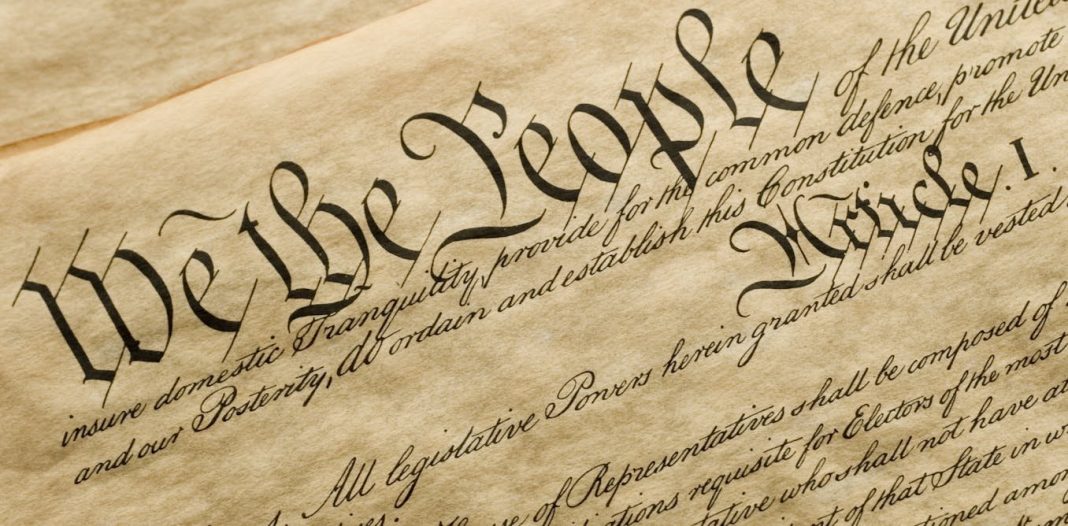 We the People of the United
insure domestic Tranquility, provide for the common defence, promote
and our Posterity, do ordain and establish this Constitution for the Un
Article. I.
All legislative Powers herein granted shall be vested
of Representatives shall be composed of
ations requisite for Electors of the most
tative who shall not have at
of that State in w
tioned amon